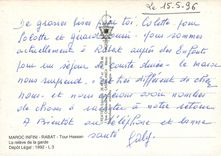 Le 15.5.96
De grosses bises pour toi, Colette pour
Lolotte et Gérard. Nous sommes
actuellement à Rabat auprès des Enfants
pour un séjour de courte durée. Le maroc
nous surprend. C'est bien différent de chez
nous. et nous aurons nombre
de choses à raconter à notre retour
A Bientôt au téléphone et bonne
santé
MAROC INFINI - RABAT - Tour Hassan
La relève de la garde
Dépôt Légal : 1992 - L 3